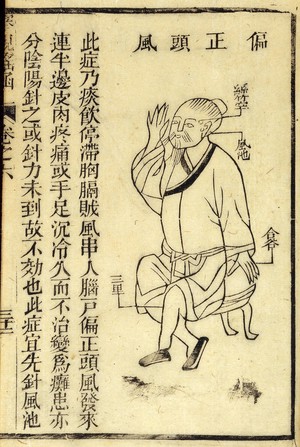 偏正頭風
絲竹空
風池
合谷
三里
此症乃痰飲停滯胸膈賊風串入腦戶偏正頭風發來
連半邊皮肉疼痛或手足沉冷久而不治變爲癱患亦
分陰陽針之或針力未到故不効也此症宜先針風池
卷之六